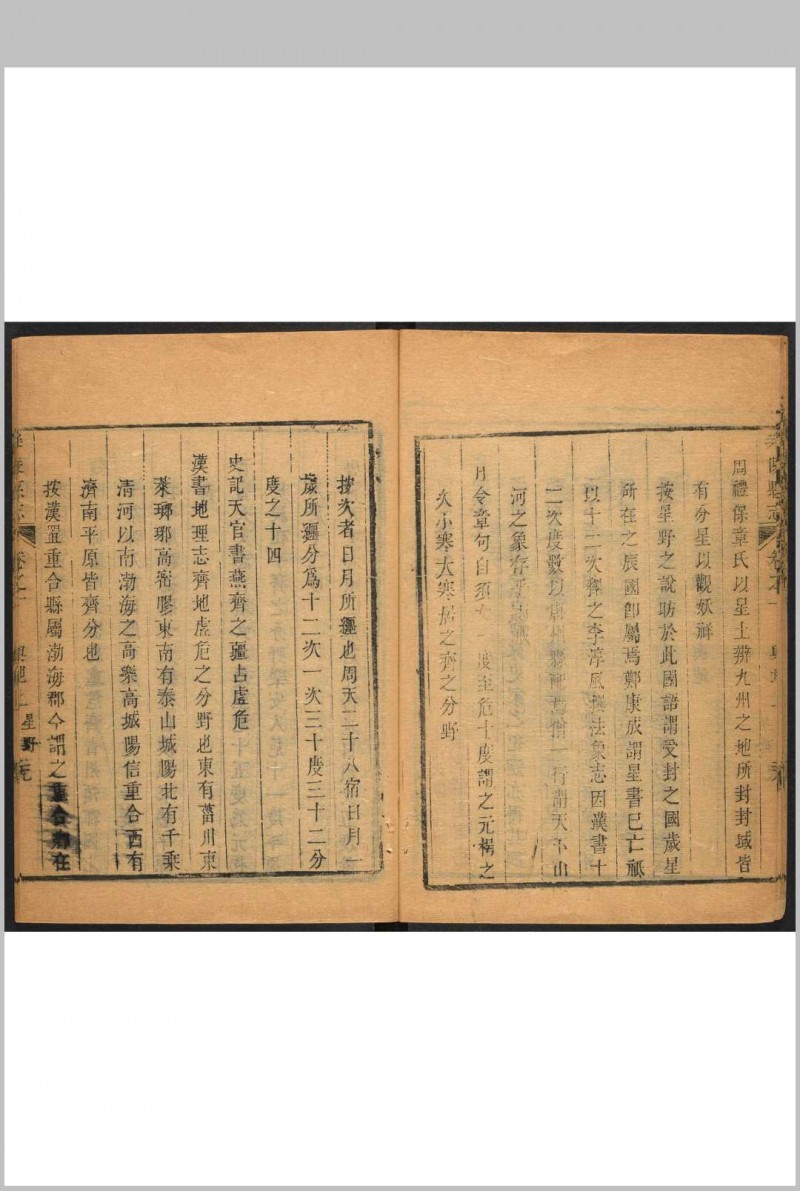 周禮保章氏以星土辨九州之地所封封域皆
有分星以觀妖祥
按星野之說昉於此國語謂受封之國歲星
所在之辰國卽屬焉鄭康成謂星書已亡祗
以十二次釋之李淳風撰法象志因漢書十
二次度數以唐州縣配焉僧一行謂天下山
河之象存乎
月令章句自須女 度至危十度謂之元枵之
次小寒大寒居之齊之分野
按次者日月所躔也周天二十八宿日月一
歲所躔分爲十二次一次三十度三十二分
度之十四
史記天官書燕齊之疆占虛危
漢書地理志齊地虛危之分野也東有菑川東
萊瑯琊高密膠東南有泰山城陽北有千乘
清河以南渤海之高樂高城陽信重合西有
濟南平原皆齊分也
按漢置重合縣屬渤海郡今謂之重合鄉在
縣志
卷之
輿地
星野